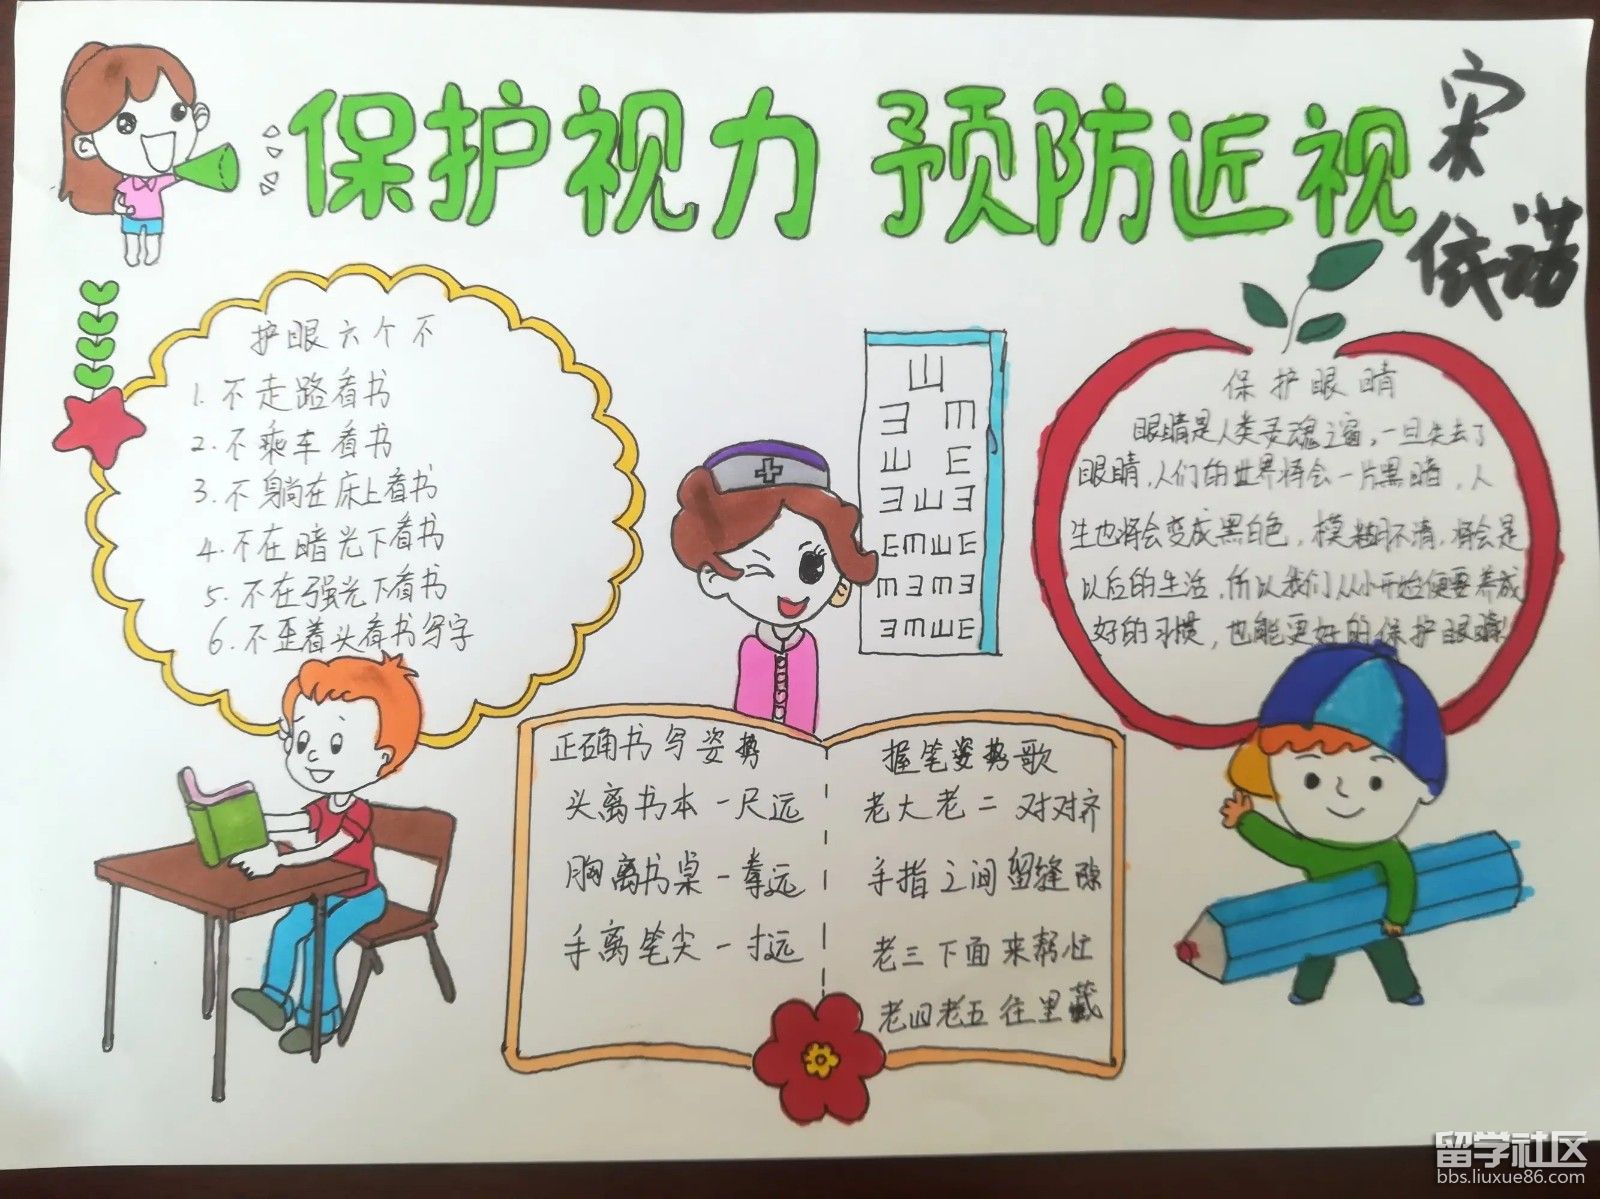 保护视力 预防近视
宋
依诺
护眼六个不
1. 不走路看书
2. 不乘车看书
3. 不躺在床上看书
4. 不在暗光下看书
5. 不在强光下看书
6. 不歪着头看书写字
保护眼睛
眼睛是人类灵魂之窗,一旦失去了
眼睛,人们的世界将会一片黑暗,人
生也将会变成黑白色,模糊不清,将会是
以后的生活,所以我们从小开始便要养成
好的习惯,也能更好的保护眼睛!
正确书写姿势
头离书本一尺远
胸离书桌一拳远
手离笔尖一寸远
握笔姿势歌
老大老二对对齐
手指之间留缝隙
老三下面来帮忙
老四老五往里藏
留学社区
bbs.liuxue86.com